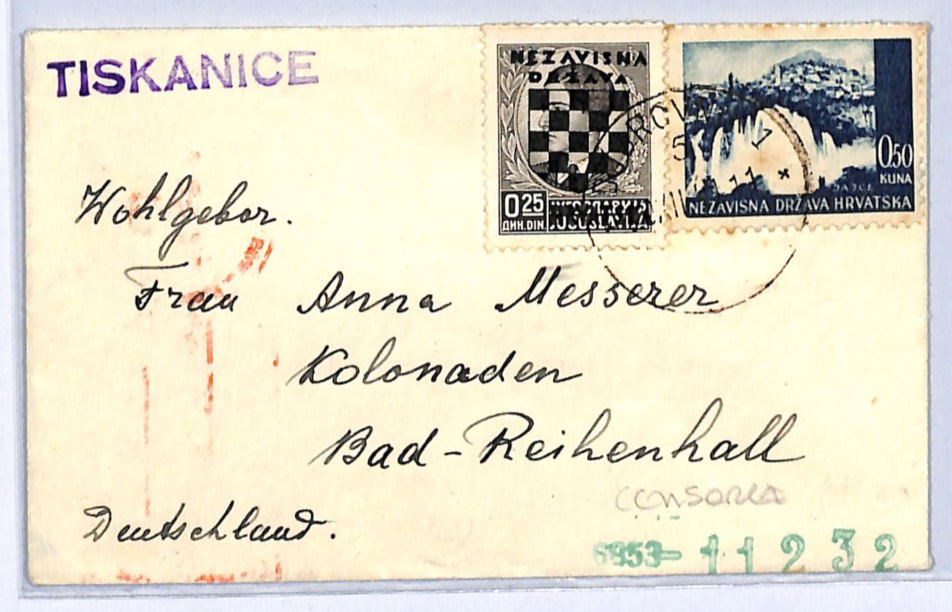 TISKANICE
NEZAVISNA
DRŽAVA
0.25
ДИН. DIN.
JUGOSLAVIJA
JAJCE
0.50
KUNA
NEZAVISNA DRŽAVA HRVATSKA
Wohlgebor.
Frau Anna Messerer
Kolonaden
Bad-Reihenhall
Deutschland.
6953- 11232